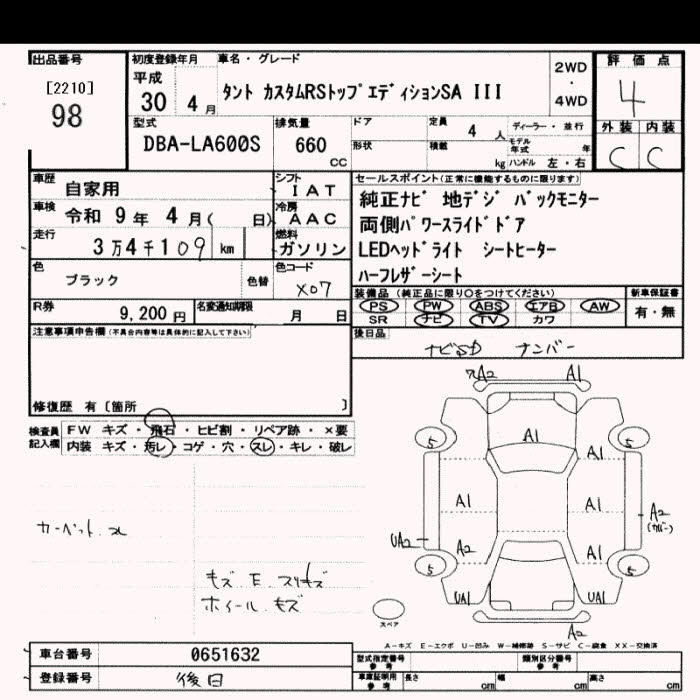 出品番号
[2210]
98
初度登録年月
平成
30 4月
車名・グレード
タント カスタムRSトップエディションSA III
2WD
・
4WD
評価点
4
外装 内装
C C
型式
DBA-LA600S
排気量
660
CC
ドア
形状
定員
4人
積載
kg
ディーラー・並行
モデル年式 年
ハンドル 左・右
車歴
自家用
シフト
IAT
車検
令和 9年 4月( 日)
冷房
AAC
走行
3万4千109km
燃料
ガソリン
色
ブラック
色替
色コード
X07
R券
9,200円
名変通知期限
月 日
セールスポイント(正常に機能するものに限ります)
純正ナビ 地デジ バックモニター
両側パワースライドドア
LEDヘッドライト シートヒーター
ハーフレザーシート
装備品(純正品に限り○をつけてください)
PS PW ABS エアB AW
SR ナビ TV カワ
新車保証書
有・無
後日品
ナビSD ナンバー
注意事項申告欄(不具合内容等は具体的に記入して下さい)
修復歴 有〔箇所 〕
検査員
記入欄
FW キズ・飛石・ヒビ割・リペア跡・×要
内装 キズ・汚レ・コゲ・穴・スレ・キレ・破レ
キズ.E.スリキズ
ホイールキズ
A2 A1
5 5
A1
A1
A1 A1
A2
(カバー)
UA2
A2 A1
5 5
UA1 UA1
スペア
A2
A-キズ E-エクボ U-凹み W-補修跡 S-サビ C-腐食 XX-交換済
車台番号
0651632
登録番号
後日
型式指定番号
参考
類別区分番号
参考
車庫証明用
参考
長さ cm
幅 cm
高さ cm